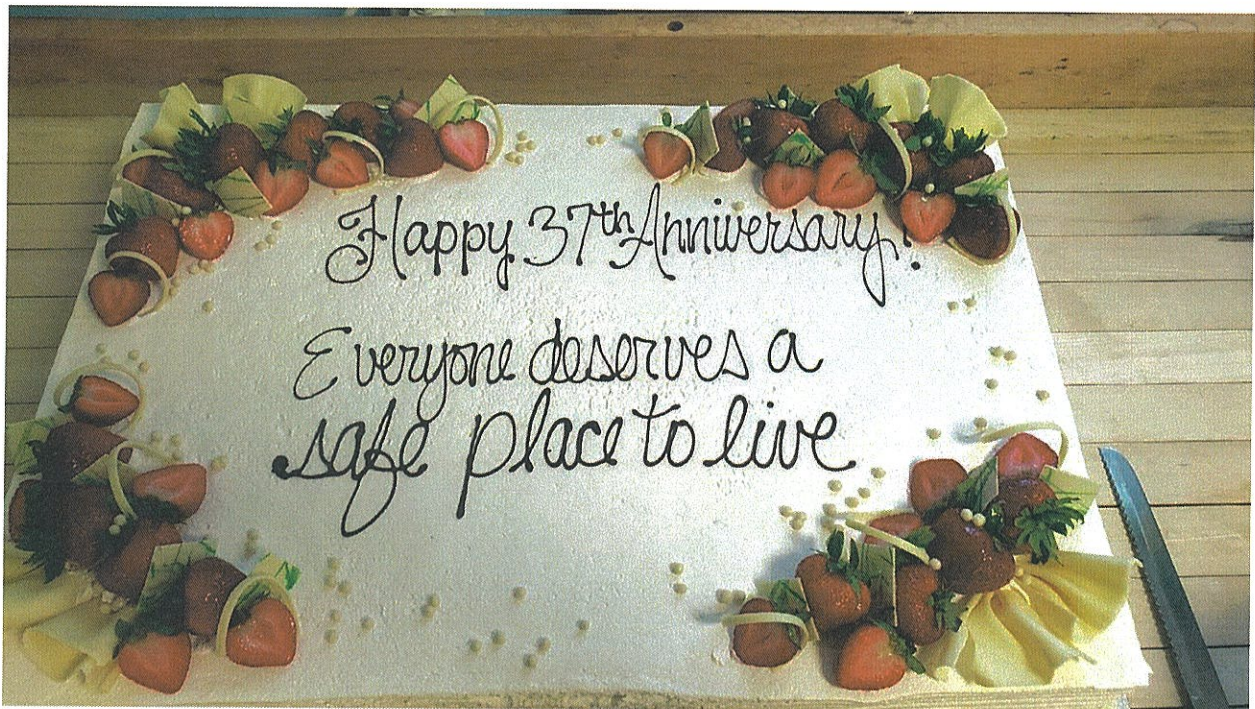 Happy 37th Anniversary!
Everyone deserves a
safe place to live